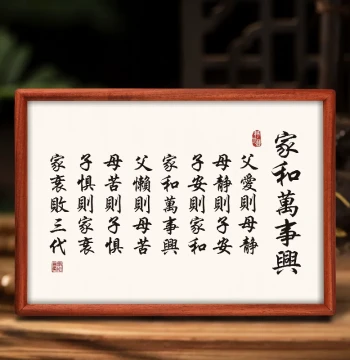 家和萬事興
父愛則母靜
母靜則子安
子安則家和
家和萬事興
父懶則母苦
母苦則子惧
子惧則家衰
家衰敗三代